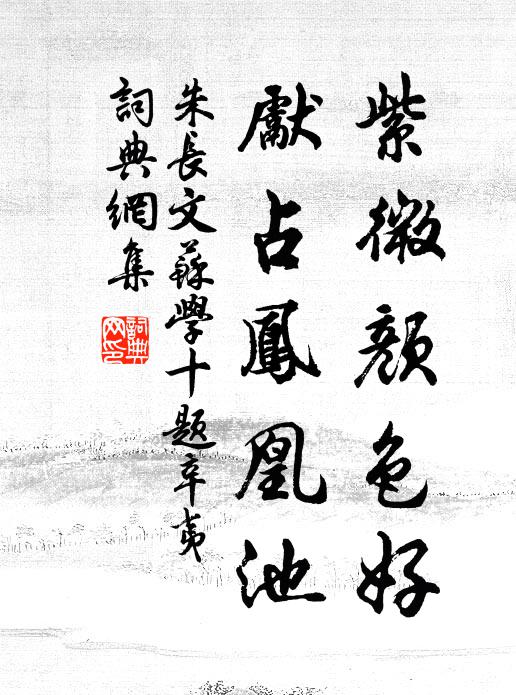 紫微顏色好
獻占鳳凰池
朱長文蘇學十題辛夷
詞典網集
詞典網印